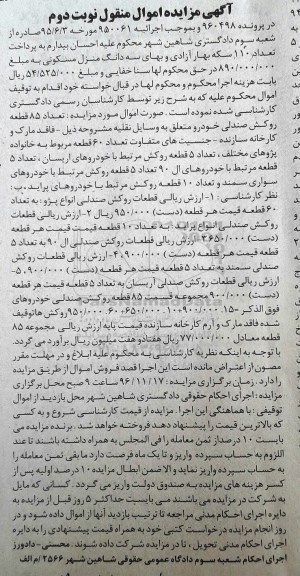 آگهی مزایده اموال منقول نوبت دوم
در پرونده ۹۶۰۴۹۸ و بموجب اجرائیه ۹۵۰۰۶۱ مورخه ۹۵/۶/۳ صادره از
شعبه سوم دادگستری شاهین شهر محکوم علیه احسان بیدارم به پرداخت
تعداد ۱۱۰ سکه بهار آزادی و بهای سه دانگ منزل مسکونی به مبلغ
۸۹۰/۰۰۰/۰۰۰ در حق محکوم لها سنا خفایی و مبلغ ۵۴/۵۲۵/۰۰۰ ریال
بابت هزینه اجرا محکوم و محکوم لها در قبال خواسته خود اقدام به توقیف
اموال محکوم علیه که به شرح زیر توسط کارشناسان رسمی دادگستری
کارشناسی شده نموده است . صورت اموال مورد مزایده : تعداد ۸۵ قطعه
روکش صندلی خودرو متعلق به وسایل نقلیه مشروحه ذیل - فاقد مارک و
کارخانه سازنده - جنسیت های متفاوت تعداد ۶۰ قطعه مربوط به خانواده
پژوهای مختلف ، تعداد ۵ قطعه روکش مرتبط با خودروهای آریسان ، تعداد ۵
قطعه مرتبط با خودروهای ال ۹۰ تعداد ۵ قطعه روکش مرتبط با خودروهای
سواری سمند و تعداد ۱۰ قطعه روکش مرتبط با خودروهای پراید .ب:
نظر کارشناسی : ۱- ارزش ریالی قطعات روکش صندلی انواع پژو : به تعداد
۶۰ قطعه قیمت هر قطعه (دست) ۹۵۰/۰۰۰ ریال ۲- ارزش ریالی قطعات
روکش صندلی انواع پراید : به تعداد ۱۰ قطعه قیمت هر قطعه
(دست) ۶۵۰/۰۰۰ ۳- ارزش ریالی قطعات روکش صندلی ال ۹۰ به تعداد ۵
قطعه قیمت هر قطعه (دست) ۹۰۰/۰۰۰ ۴- ارزش ریالی قطعات روکش
صندلی سمند به تعداد ۵ قطعه قیمت هر قطعه (دست) ۹۰۰/۰۰۰ ۵-
ارزش ریالی قطعات روکش صندلی آریسان به تعداد ۵ قطعه قیمت هر قطعه
(دست) ۹۰۰/۰۰۰ مجموعه قیمت ۸۵ قطعه روکش صندلی خودروهای
فوق الذکر
شده فاقد مارک و آرم کارخانه سازنده قیمت پایه ارزش ریالی مجموعه ۸۵
قطعه معادل ۷۷/۰۰۰/۰۰۰ ریال هفتاد و هفت میلیون ریال برآورد می گردد.
با توجه به اینکه نظریه کارشناسی به محکوم علیه ابلاغ و در مهلت مقرر
مصون از اعتراض مانده است این اجرا قصد فروش اموال از طریق مزایده
را دارد . زمان برگزاری مزایده : ۹۶/۱۱/۱۷ ساعت ۹ صبح محل برگزاری
مزایده : اجرای احکام حقوقی دادگستری شاهین شهر محل بازدید از اموال
توقیفی : با هماهنگی این اجرا . مزایده از قیمت کارشناسی شروع و به کسی
که بالاترین قیمت را پیشنهاد دهد فروخته خواهد شد . برنده مزایده می
بایست ۱۰ درصد از ثمن معامله را فی المجلس به همراه داشته باشند تا عند
اللزوم به حساب سپرده واریز و تا یک ماه فرصت دارد مابقی ثمن معامله را
به حساب سپرده واریز نماید و الا ضمن ابطال مزایده ۱۰ درصد اولیه پس از
کسر هزینه های مزایده به صندوق دولت واریز می گردد . کسانی که مایل
به شرکت در مزایده می باشند می بایست حداکثر ۵ روز قبل از مزایده به
دایره اجرای احکام مدنی مراجعه تا ترتیب بازدید آنها از اموال داده شود و در
روز انجام مزایده درخواست کتبی خود به همراه قیمت پیشنهادی را به دایره
اجرای احکام مدنی تحویل ، تا در مزایده شرکت داده شوند. محسنی - دادورز
اجرای احکام شعبه سوم دادگاه عمومی حقوقی شاهین شهر ۲۵۶۶ / م الف